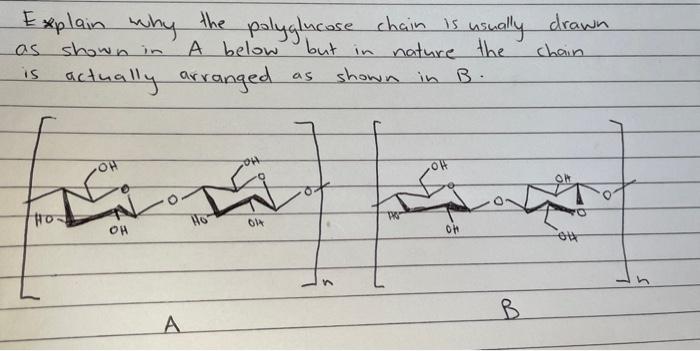 Explain why the polyglucose chain is usually drawn
as shown in A below but in nature the chain
is actually arranged as shown in B.
OH OH OH OH
O O O O O O O O
HO OH HO OH HO OH OH
n n
A B